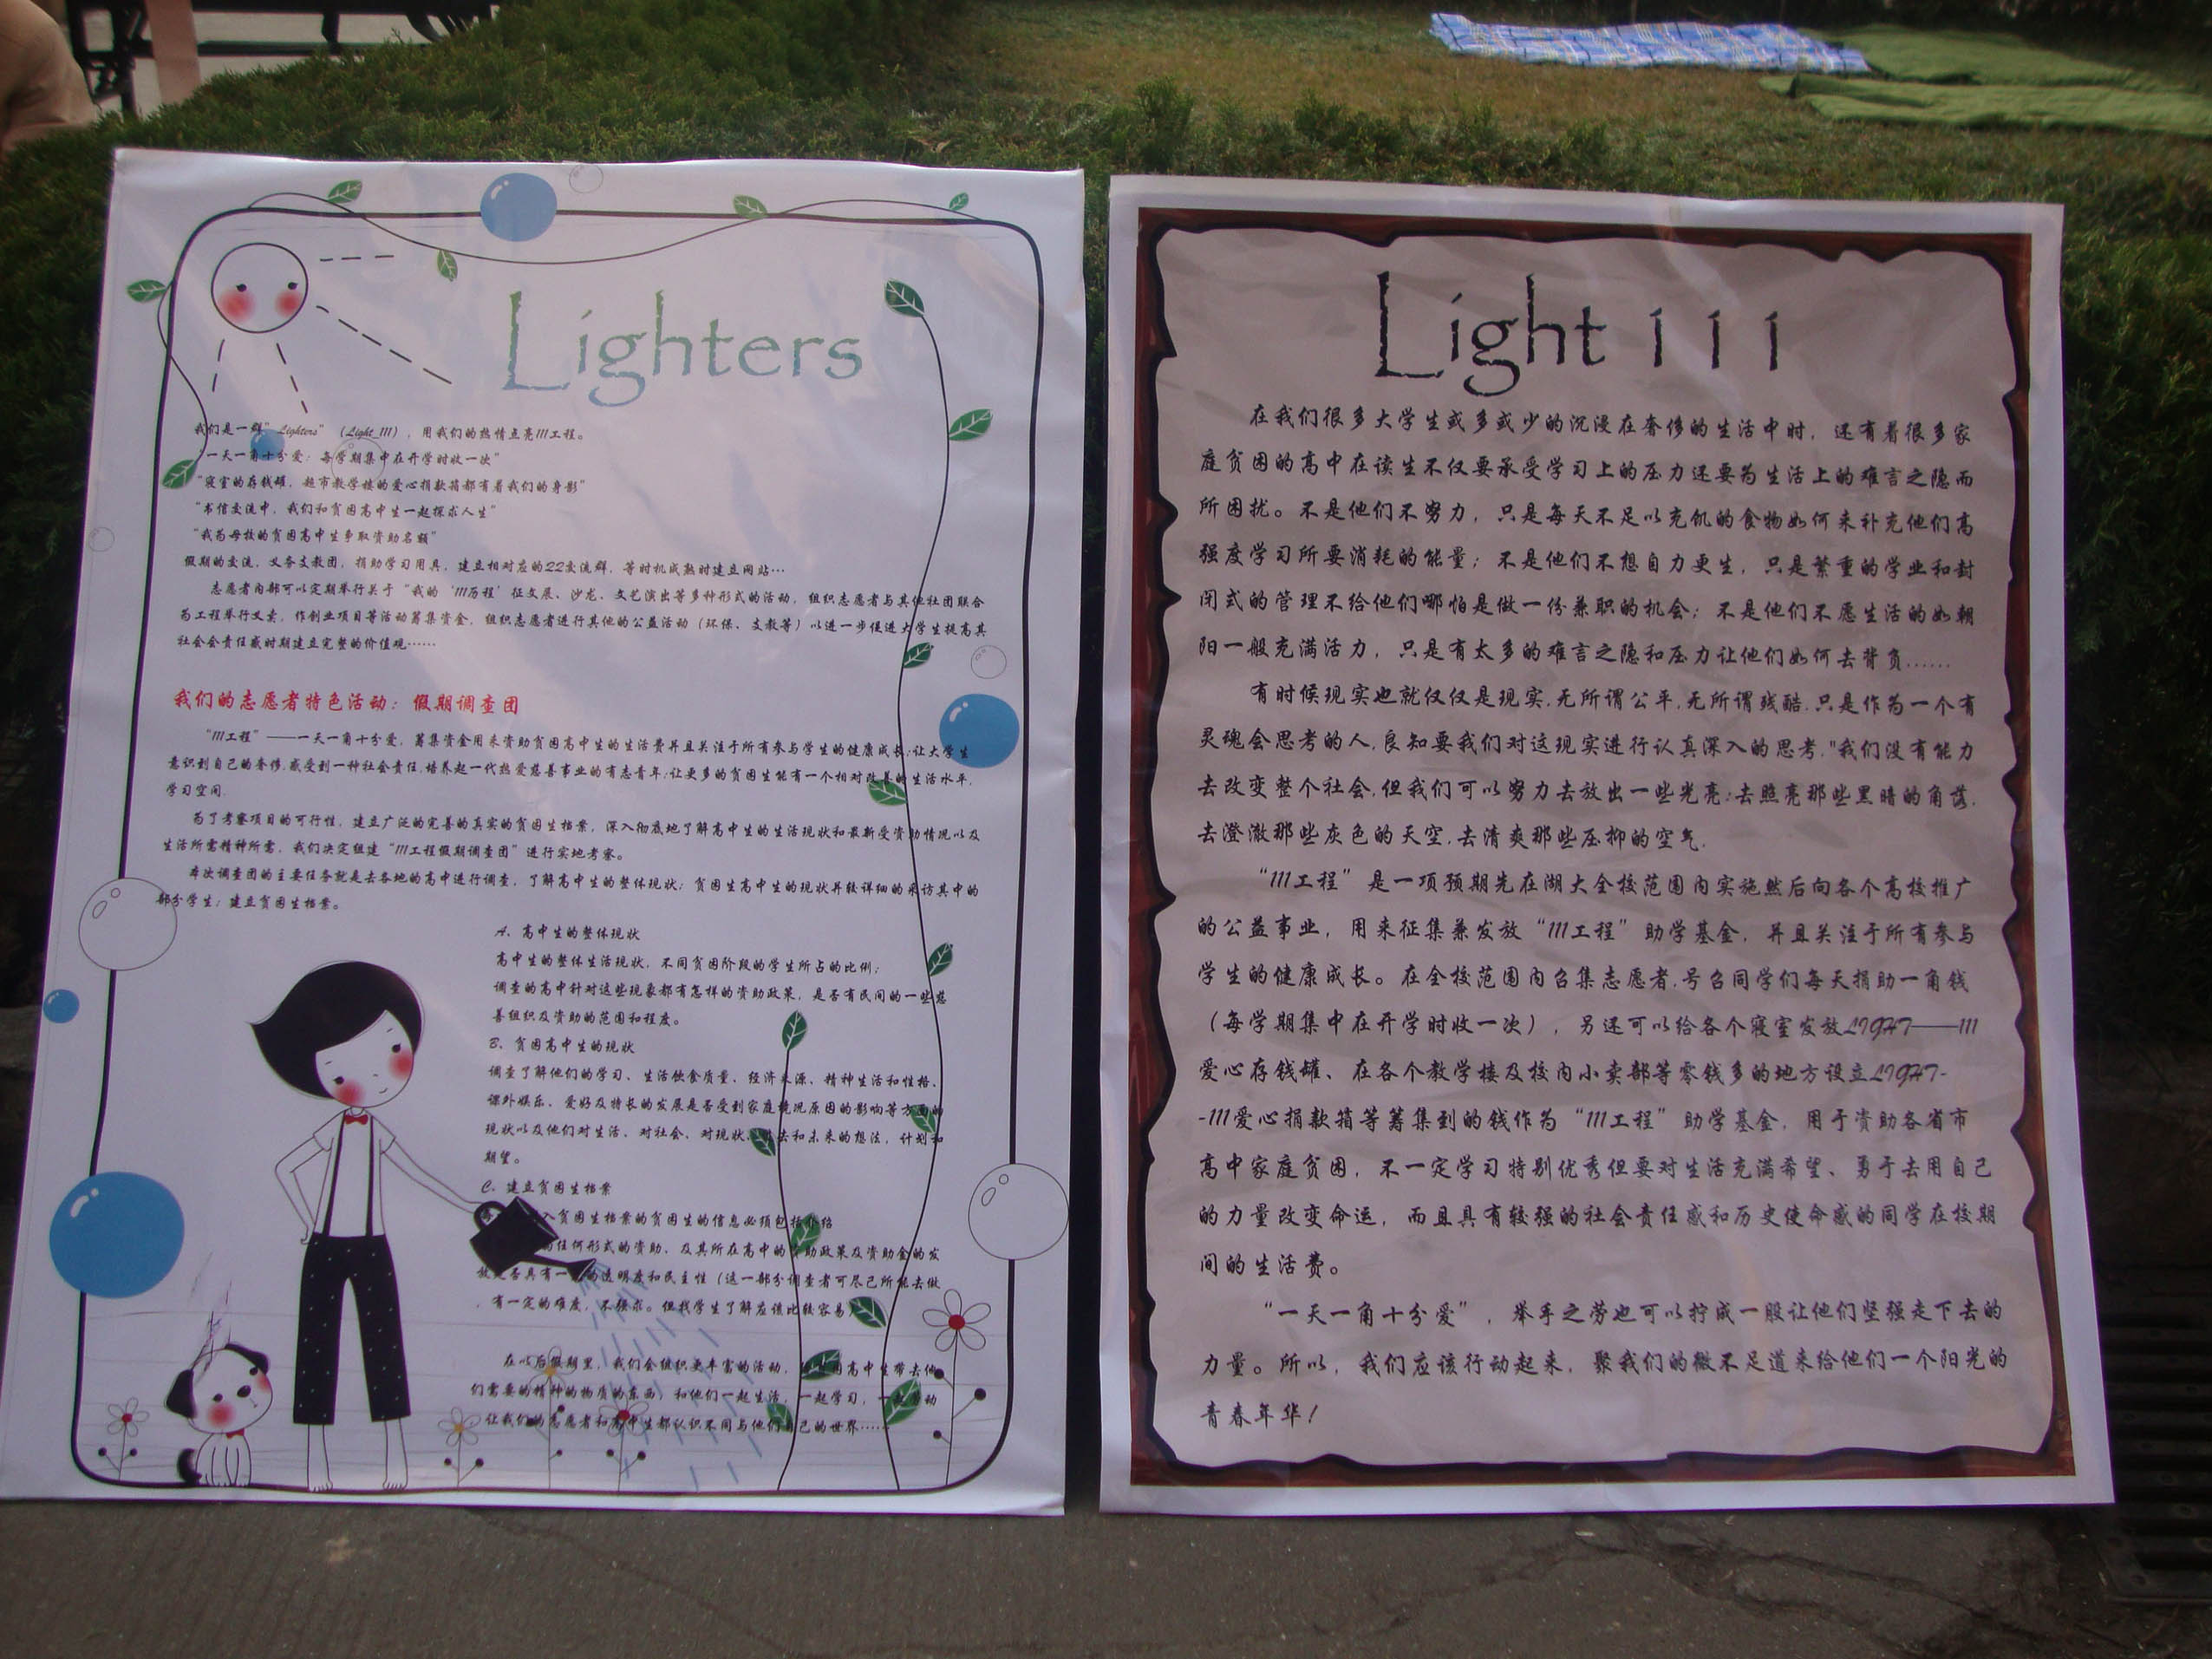 Lighters
我们是一群"Lighters"（Light_111），用我们的热情点亮111工程。
"一天一角十分爱：每学期集中在开学时收一次"
"寝室的存钱罐，超市教学楼的爱心捐款箱都有着我们的身影"
"书信交流中，我们和贫困高中生一起探求人生"
"我为母校的贫困高中生争取资助名额"
假期的交流，义务支教团，捐助学习用具，建立相对应的22交流群，等时机成熟时建立网站…
志愿者内部可以定期举行关于"我的'111历程'征文展、沙龙、文艺演出等多种形式的活动，组织志愿者与其他社团联合
为工程举行义卖，作创业项目等活动筹集资金，组织志愿者进行其他的公益活动（环保、支教等）以进一步促进大学生提高其
社会会责任感时期建立完整的价值观……
我们的志愿者特色活动：假期调查团
"111工程"——一天一角十分爱，筹集资金用来资助贫困高中生的生活费并且关注于所有参与学生的健康成长;让大学生
意识到自己的奢侈,感受到一种社会责任,培养起一代热爱慈善事业的有志青年;让更多的贫困生能有一个相对改善的生活水平,
学习空间.
为了考察项目的可行性，建立广泛的完善的真实的贫困生档案，深入彻底地了解高中生的生活现状和最新受资助情况以及
生活所需精神所需，我们决定组建"111工程假期调查团"进行实地考察。
本次调查团的主要任务就是去各地的高中进行调查，了解高中生的整体现状；贫困生高中生的现状并较详细的采访其中的
部分学生；建立贫困生档案。
A、高中生的整体现状
高中生的整体生活现状，不同贫困阶段的学生所占的比例；
调查的高中针对这些现象都有怎样的资助政策，是否有民间的一些慈
善组织及资助的范围和程度。
B、贫困高中生的现状
调查了解他们的学习、生活饮食质量、经济来源、精神生活和性格、
课外娱乐、爱好及特长的发展是否受到家庭境况原因的影响等方面的
现状以及他们对生活、对社会、对现状、过去和未来的想法，计划和
期望。
C、建立贫困生档案
入贫困生档案的贫困生的信息必须包括介绍
任何形式的资助，及其所在高中的资助政策及资助金的发
放是否具有一定的透明度和民主性（这一部分调查者可尽己所能去做
，有一定的难度，不强求。但找学生了解应该比较容易）
在以后假期里，我们会组织更丰富的活动，高中生带去他
们需要的精神的物质的东西，和他们一起生活，一起学习，一起劳动
让我们的志愿者和高中生都认识不同与他们自己的世界……
Light 111
在我们很多大学生或多或少的沉浸在奢侈的生活中时，还有着很多家
庭贫困的高中在读生不仅要承受学习上的压力还要为生活上的难言之隐而
所困扰。不是他们不努力，只是每天不足以充饥的食物如何来补充他们高
强度学习所要消耗的能量；不是他们不想自力更生，只是繁重的学业和封
闭式的管理不给他们哪怕是做一份兼职的机会；不是他们不愿生活的如朝
阳一般充满活力，只是有太多的难言之隐和压力让他们如何去背负……
有时候现实也就仅仅是现实,无所谓公平,无所谓残酷.只是作为一个有
灵魂会思考的人,良知要我们对这现实进行认真深入的思考."我们没有能力
去改变整个社会,但我们可以努力去放出一些光亮:去照亮那些黑暗的角落,
去澄澈那些灰色的天空,去清爽那些压抑的空气.
"111工程"是一项预期先在湖大全校范围内实施然后向各个高校推广
的公益事业，用来征集兼发放"111工程"助学基金，并且关注于所有参与
学生的健康成长。在全校范围内召集志愿者,号召同学们每天捐助一角钱
（每学期集中在开学时收一次），另还可以给各个寝室发放LIGHT——111
爱心存钱罐、在各个教学楼及校内小卖部等零钱多的地方设立LIGHT-
-111爱心捐款箱等筹集到的钱作为"111工程"助学基金，用于资助各省市
高中家庭贫困，不一定学习特别优秀但要对生活充满希望、勇于去用自己
的力量改变命运，而且具有较强的社会责任感和历史使命感的同学在校期
间的生活费。
"一天一角十分爱"，举手之劳也可以拧成一股让他们坚强走下去的
力量。所以，我们应该行动起来，聚我们的微不足道来给他们一个阳光的
青春年华！